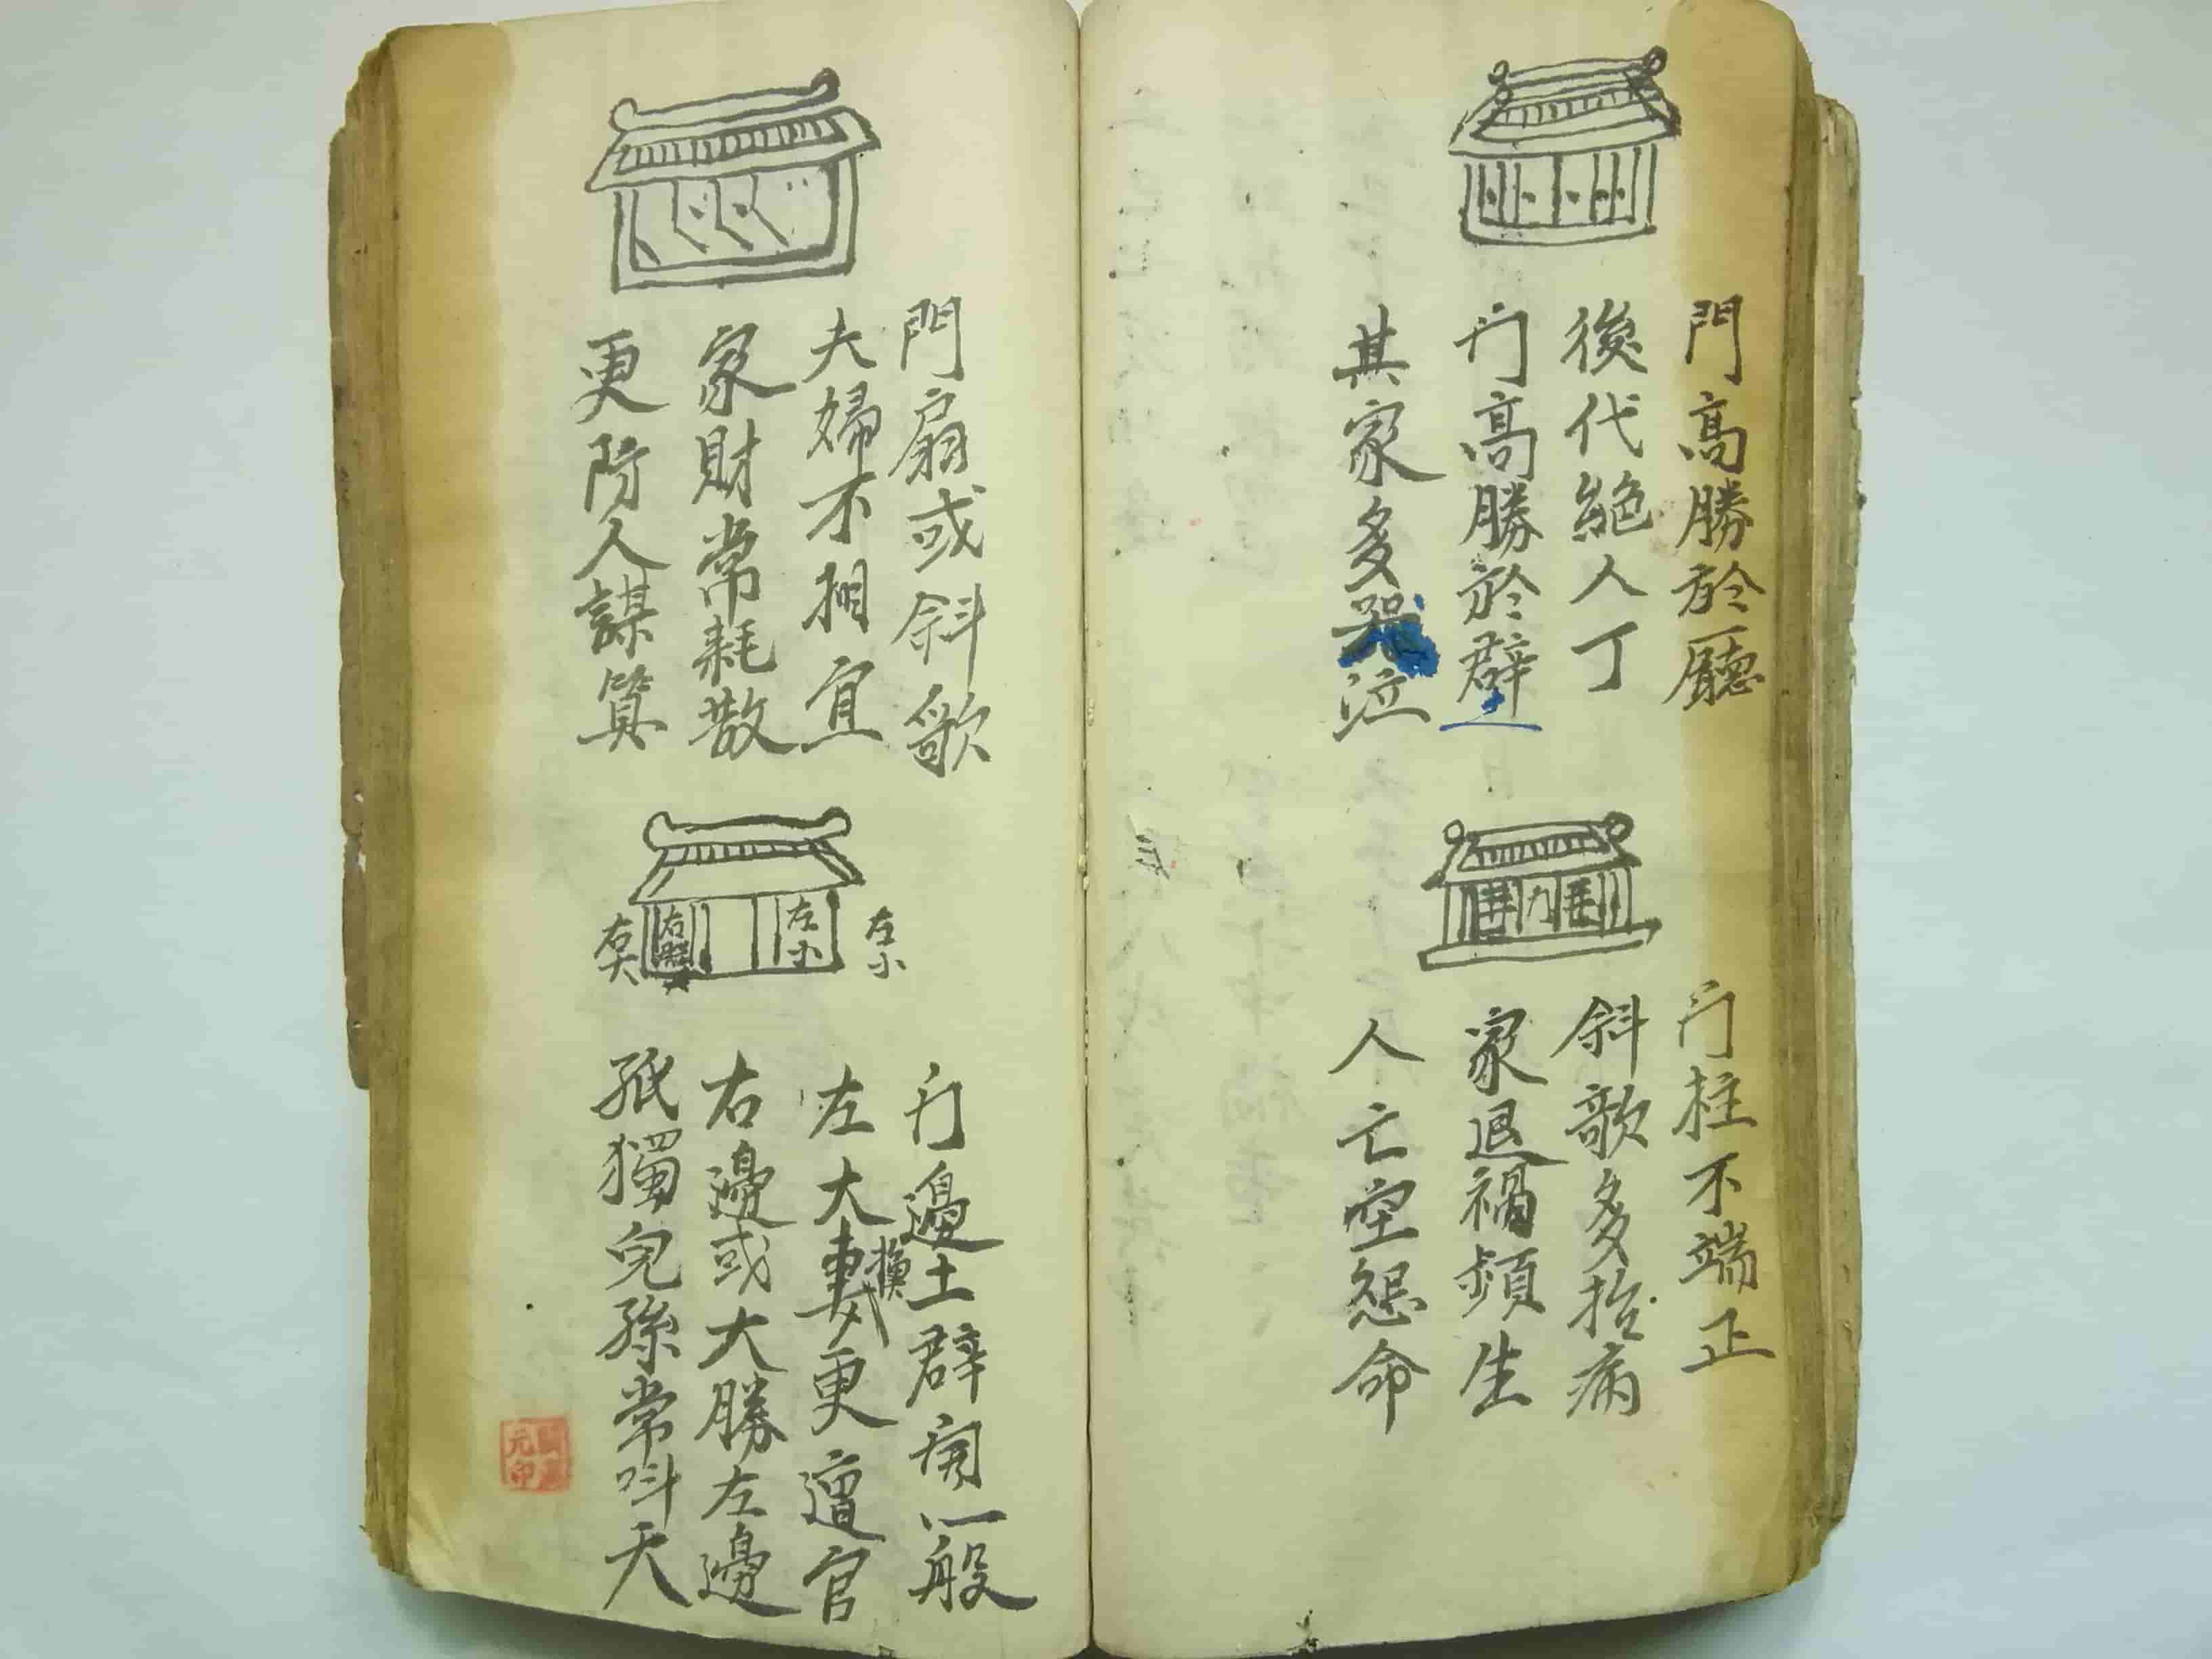 門高勝於廳
後代絕人丁
门高勝於壁
其家多哭泣
门柱不端正
斜歌多招病
家退禍頻生
人亡空怨命
門扇或斜歌
夫婦不相宜
家財常耗散
更防人謀算
左小
左小
右
右大
门邊土辟一般
左大換妻更遭官
右邊或大勝左邊
孤獨兒孫常叫天
元印